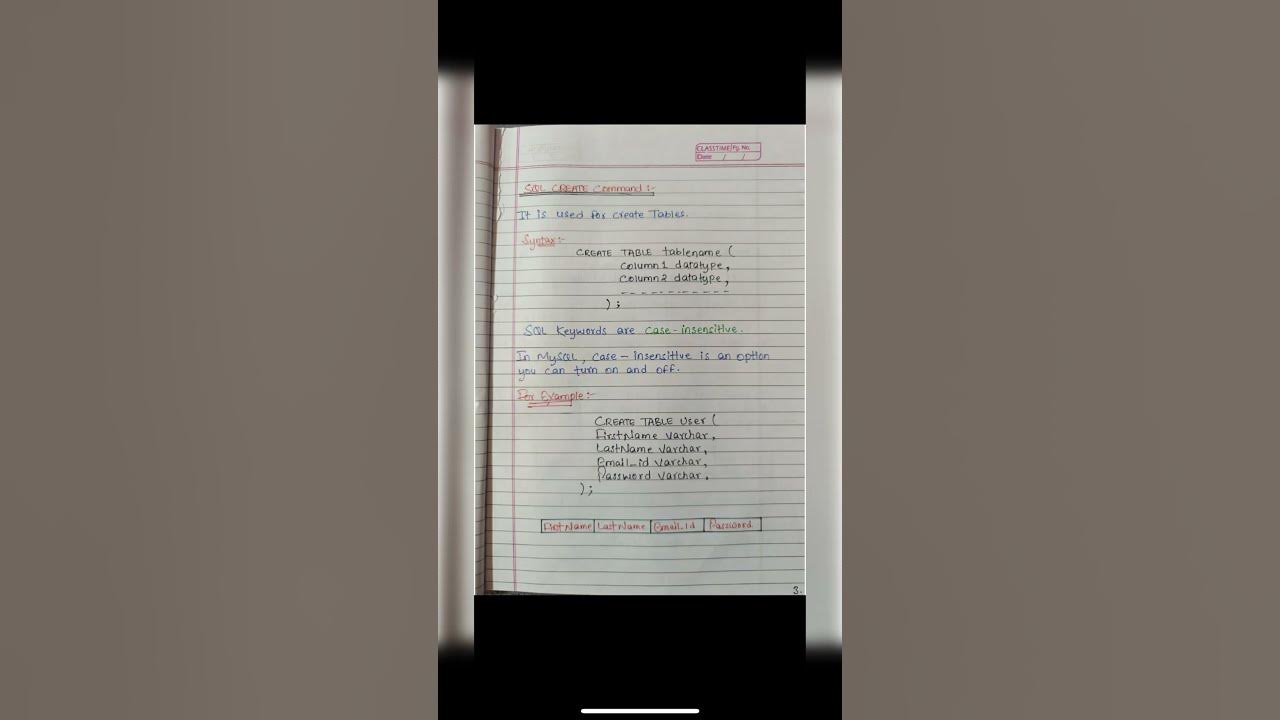 CLASSTIME/Pg. No.
Date / /
SQL CREATE Command :-
It is used for create Tables.
Syntax :-
CREATE TABLE tablename (
Column1 datatype,
Column2 datatype,
------------
);
SQL Keywords are case-insensitive.
In MySQL, case-insensitive is an option
you can turn on and off.
For Example :-
CREATE TABLE User (
FirstName varchar,
LastName varchar,
Email_id varchar,
Password varchar.
);
FirstName LastName Email_id Password
3.